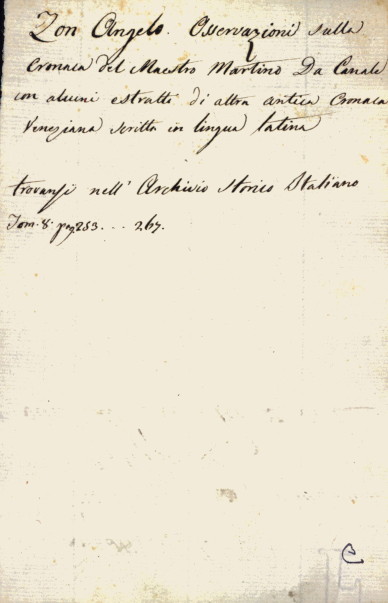 Zon Angelo. Osservazioni sulla
Cronaca del Maestro Martino Da Canale
con alcuni estratti di altra antica Cronaca
Veneziana scritta in lingua latina
trovansi nell' Archivio storico Italiano
Tom. 8. pag. 253 . . . 267.